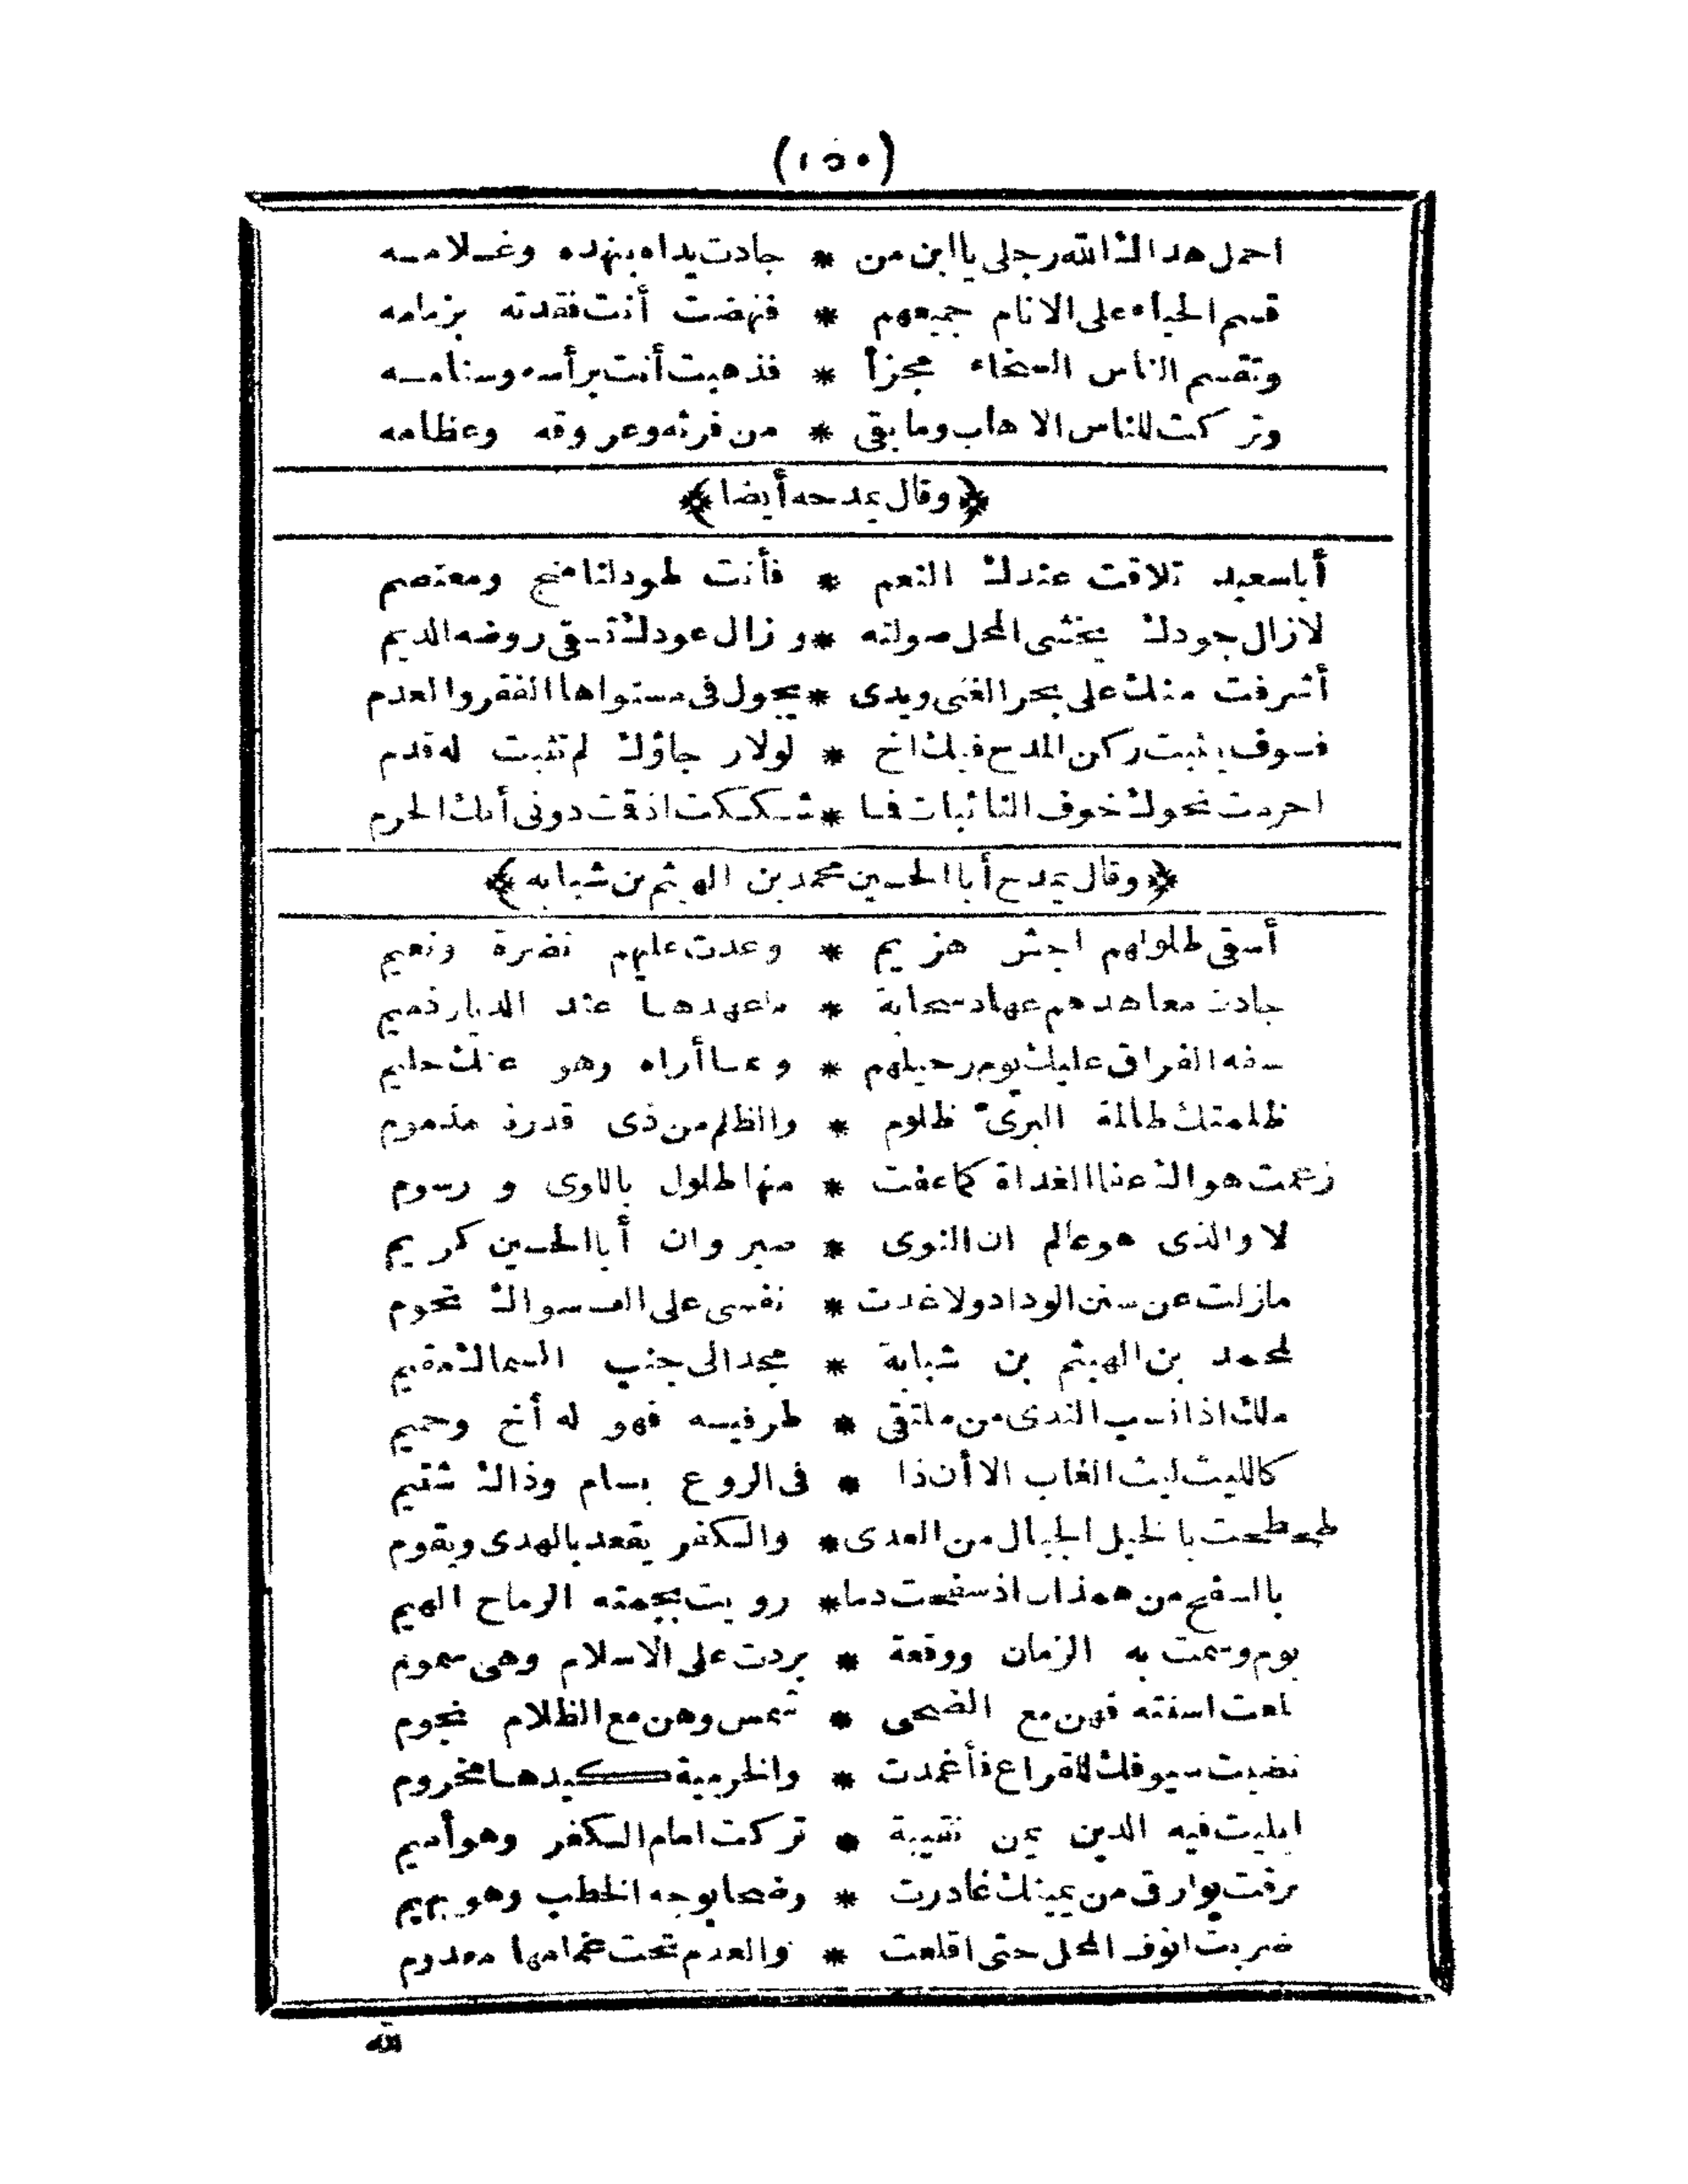 (١٥٠)
احمل هداك الله رجلى يا ابن من * جادت يداه بنهده وغلامه
قسم الحياء على الانام جميعهم * فنهضت أنت فقدته بزمامه
وتقسم الناس السخاء مجزأ * فذهبت أنت برأسه وسنامه
وتركت للناس الاهاب وما بقى * من فرثه وعروقه وعظامه
﴿وقال يمدحه أيضا﴾
أباسعيد تلاقت عندك النعم * فأنت طود لنا منج ومعتصم
لازال جودك يخشى المحل صولته * وزال عودك تسقى روضه الديم
أشرفت منك على بحر الغنى ويدى * يجول فى مستواها الفقر والعدم
فسوف يثبت ركن المدح فيك اخ * لولا رجاؤك لم تثبت له قدم
احرمت نحوك خوف النائبات فما * شككت اذ قت دونى أنك الحرم
﴿وقال يمدح أبا الحسين محمد بن الهيثم بن شبابه﴾
أسقى طلولهم اجش هزيم * وعدت عليهم نضرة ونعيم
جادت معاهدهم عهاد سحابة * ماعهدها عند الديار ذميم
سفه الفراق عليك يوم رحيلهم * وبما أراه وهو عنك حليم
ظلمتك ظالمة البرىء ظلوم * والظلم من ذى قدرة مذموم
زعمت هواك عفا الغداة كما عفت * منها طلول باللوى ورسوم
لا والذى هو عالم ان النوى * صبر وان أبا الحسين كريم
مازلت عن سنن الوداد ولا غدت * نفسى على الف سواك تحوم
لمحمد بن الهيثم بن شبابة * مجد الى جنب السماك مقيم
ملك اذا نسب الندى من ملتقى * طرفيه فهو له أخ وحميم
كالليث ليث الغاب الا أن ذا * فى الروع بسام وذاك شتيم
طحطحت بالخيل الجبال من العدى * والكفر يقعد بالهدى ويقوم
بالسفح من همذان اذ سفحت دما * رويت بجمته الرماح الهيم
يوم وسمت به الزمان ووقعة * بردت على الاسلام وهى سموم
لمعت اسنته فهن مع الضحى * شمس وهن مع الظلام نجوم
نضيت سيوفك للقراع فأغمدت * والخرمية كيدها مخروم
ابليت فيه الدين يمن نقيبة * تركت امام الكفر وهو أميم
برقت بوارق من يمينك غادرت * وضحا بوجه الخطب وهو بهيم
ضربت انوف المحل حتى اقلعت * والعدم تحت غمامها معدوم
لله